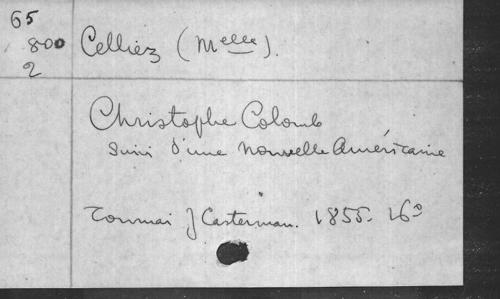 65
800
2
Celliez (Melle).
Christophe Colomb
suivi d'une nouvelle américaine
Tournai J Casterman. 1855. 16º